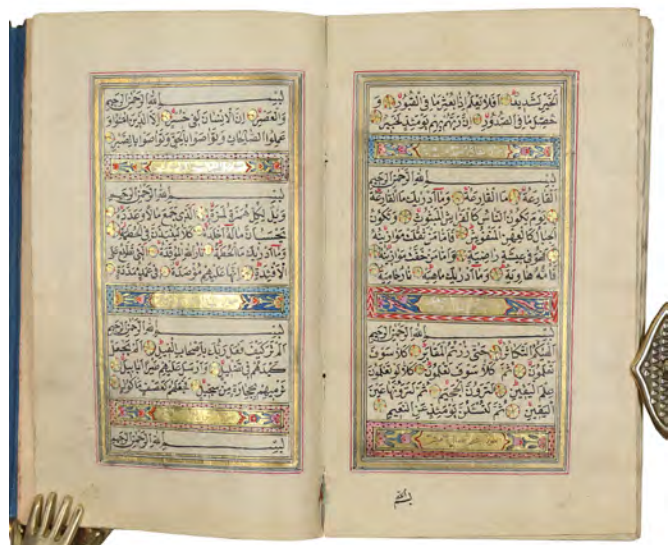 الخير لشديد افلا يعلم اذا بعثر ما في القبور و
حصل ما في الصدور ان ربهم بهم يومئذ لخبير
بسم الله الرحمن الرحيم
القارعة ما القارعة وما ادريك ما القارعة
يوم يكون الناس كالفراش المبثوث وتكون
الجبال كالعهن المنفوش فاما من ثقلت موازينه
فهو في عيشة راضية واما من خفت موازينه
فامه هاوية وما ادريك ماهيه نار حامية
بسم الله الرحمن الرحيم
الهيكم التكاثر حتى زرتم المقابر كلا سوف
تعلمون ثم كلا سوف تعلمون كلا لو تعلمون
علم اليقين لترون الجحيم ثم لترونها عين
اليقين ثم لتسئلن يومئذ عن النعيم
بسم الله
بسم الله الرحمن الرحيم
والعصر ان الانسان لفي خسر الا الذين امنوا و
عملوا الصالحات وتواصوا بالحق وتواصوا بالصبر
بسم الله الرحمن الرحيم
ويل لكل همزة لمزة الذي جمع مالا وعدده
يحسب ان ماله اخلده كلا لينبذن في الحطمة
وما ادريك ما الحطمة نار الله الموقدة التي تطلع على
الافئدة انها عليهم مؤصدة في عمد ممددة
بسم الله الرحمن الرحيم
الم تر كيف فعل ربك باصحاب الفيل الم يجعل
كيدهم في تضليل وارسل عليهم طيرا ابابيل
ترميهم بحجارة من سجيل فجعلهم كعصف ماكول
بسم الله الرحمن الرحيم